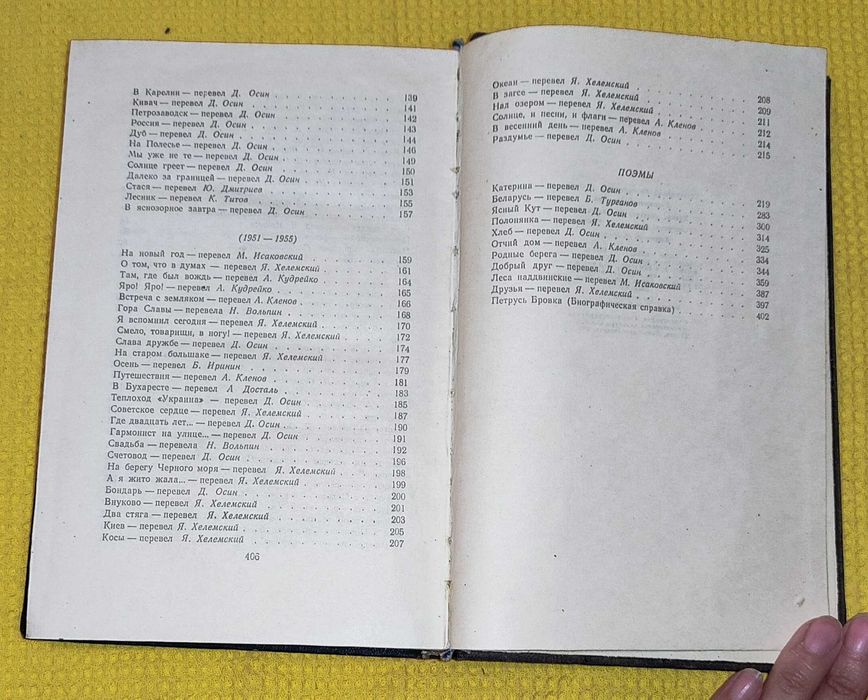 В Каролин — перевел Д. Осин 139
Кивач — перевел Д. Осин 141
Петрозаводск — перевел Д. Осин 142
Россия — перевел Д. Осин 143
Дуб — перевел Д. Осин 144
На Полесье — перевел Д. Осин 146
Мы уже не те — перевел Д. Осин 149
Солнце греет — перевел Д. Осин 150
Далеко за границей — перевел Д. Осин 151
Стася — перевел Ю. Дмитриев 153
Лесник — перевел К. Титов 155
В яснозорное завтра — перевел Д. Осин 157
(1951 — 1955)
На новый год — перевел М. Исаковский 159
О том, что в думах — перевел Я. Хелемский 161
Там, где был вождь — перевел А. Кудрейко 164
Яро! Яро! — перевел А. Кудрейко 165
Встреча с земляком — перевел А. Кленов 166
Гора Славы — перевела Н. Вольпин 168
Я вспомнил сегодня — перевел Я. Хелемский 170
Смело, товарищи, в ногу! — перевел Я. Хелемский 172
Слава дружбе — перевел Д. Осин 174
На старом большаке — перевел Я. Хелемский 177
Осень — перевел Б. Иринин 179
Путешествия — перевел А. Кленов 181
В Бухаресте — перевел А. Досталь 183
Теплоход «Украина» — перевел Д. Осин 185
Советское сердце — перевел Я. Хелемский 187
Где двадцать лет... — перевел Д. Осин 190
Гармонист на улице... — перевел Д. Осин 191
Свадьба — перевела Н. Вольпин 192
Счетовод — перевел Д. Осин 196
На берегу Черного моря — перевел Я. Хелемский 198
А я жито жала... — перевел Я. Хелемский 199
Бондарь — перевел Д. Осин 200
Внуково — перевел Я. Хелемский 201
Два стяга — перевел Я. Хелемский 203
Киев — перевел Я. Хелемский 205
Косы — перевел Я. Хелемский 207
406
Океан — перевел Я. Хелемский 208
В загсе — перевел Я. Хелемский 209
Над озером — перевел Я. Хелемский 211
Солнце, и песни, и флаги — перевел А. Кленов 212
В весенний день — перевел А. Кленов 214
Раздумье — перевел Д. Осин 215
ПОЭМЫ
Катерина — перевел Д. Осин 219
Беларусь — перевел Б. Турганов 283
Ясный Кут — перевел Д. Осин 300
Полонянка — перевел Я. Хелемский 314
Хлеб — перевел Д. Осин 325
Отчий дом — перевел А. Кленов 334
Родные берега — перевел Д. Осин 344
Добрый друг — перевел Д. Осин 359
Леса наддвинские — перевел М. Исаковский 387
Друзья — перевел Я. Хелемский 397
Петрусь Бровка (Биографическая справка) 402